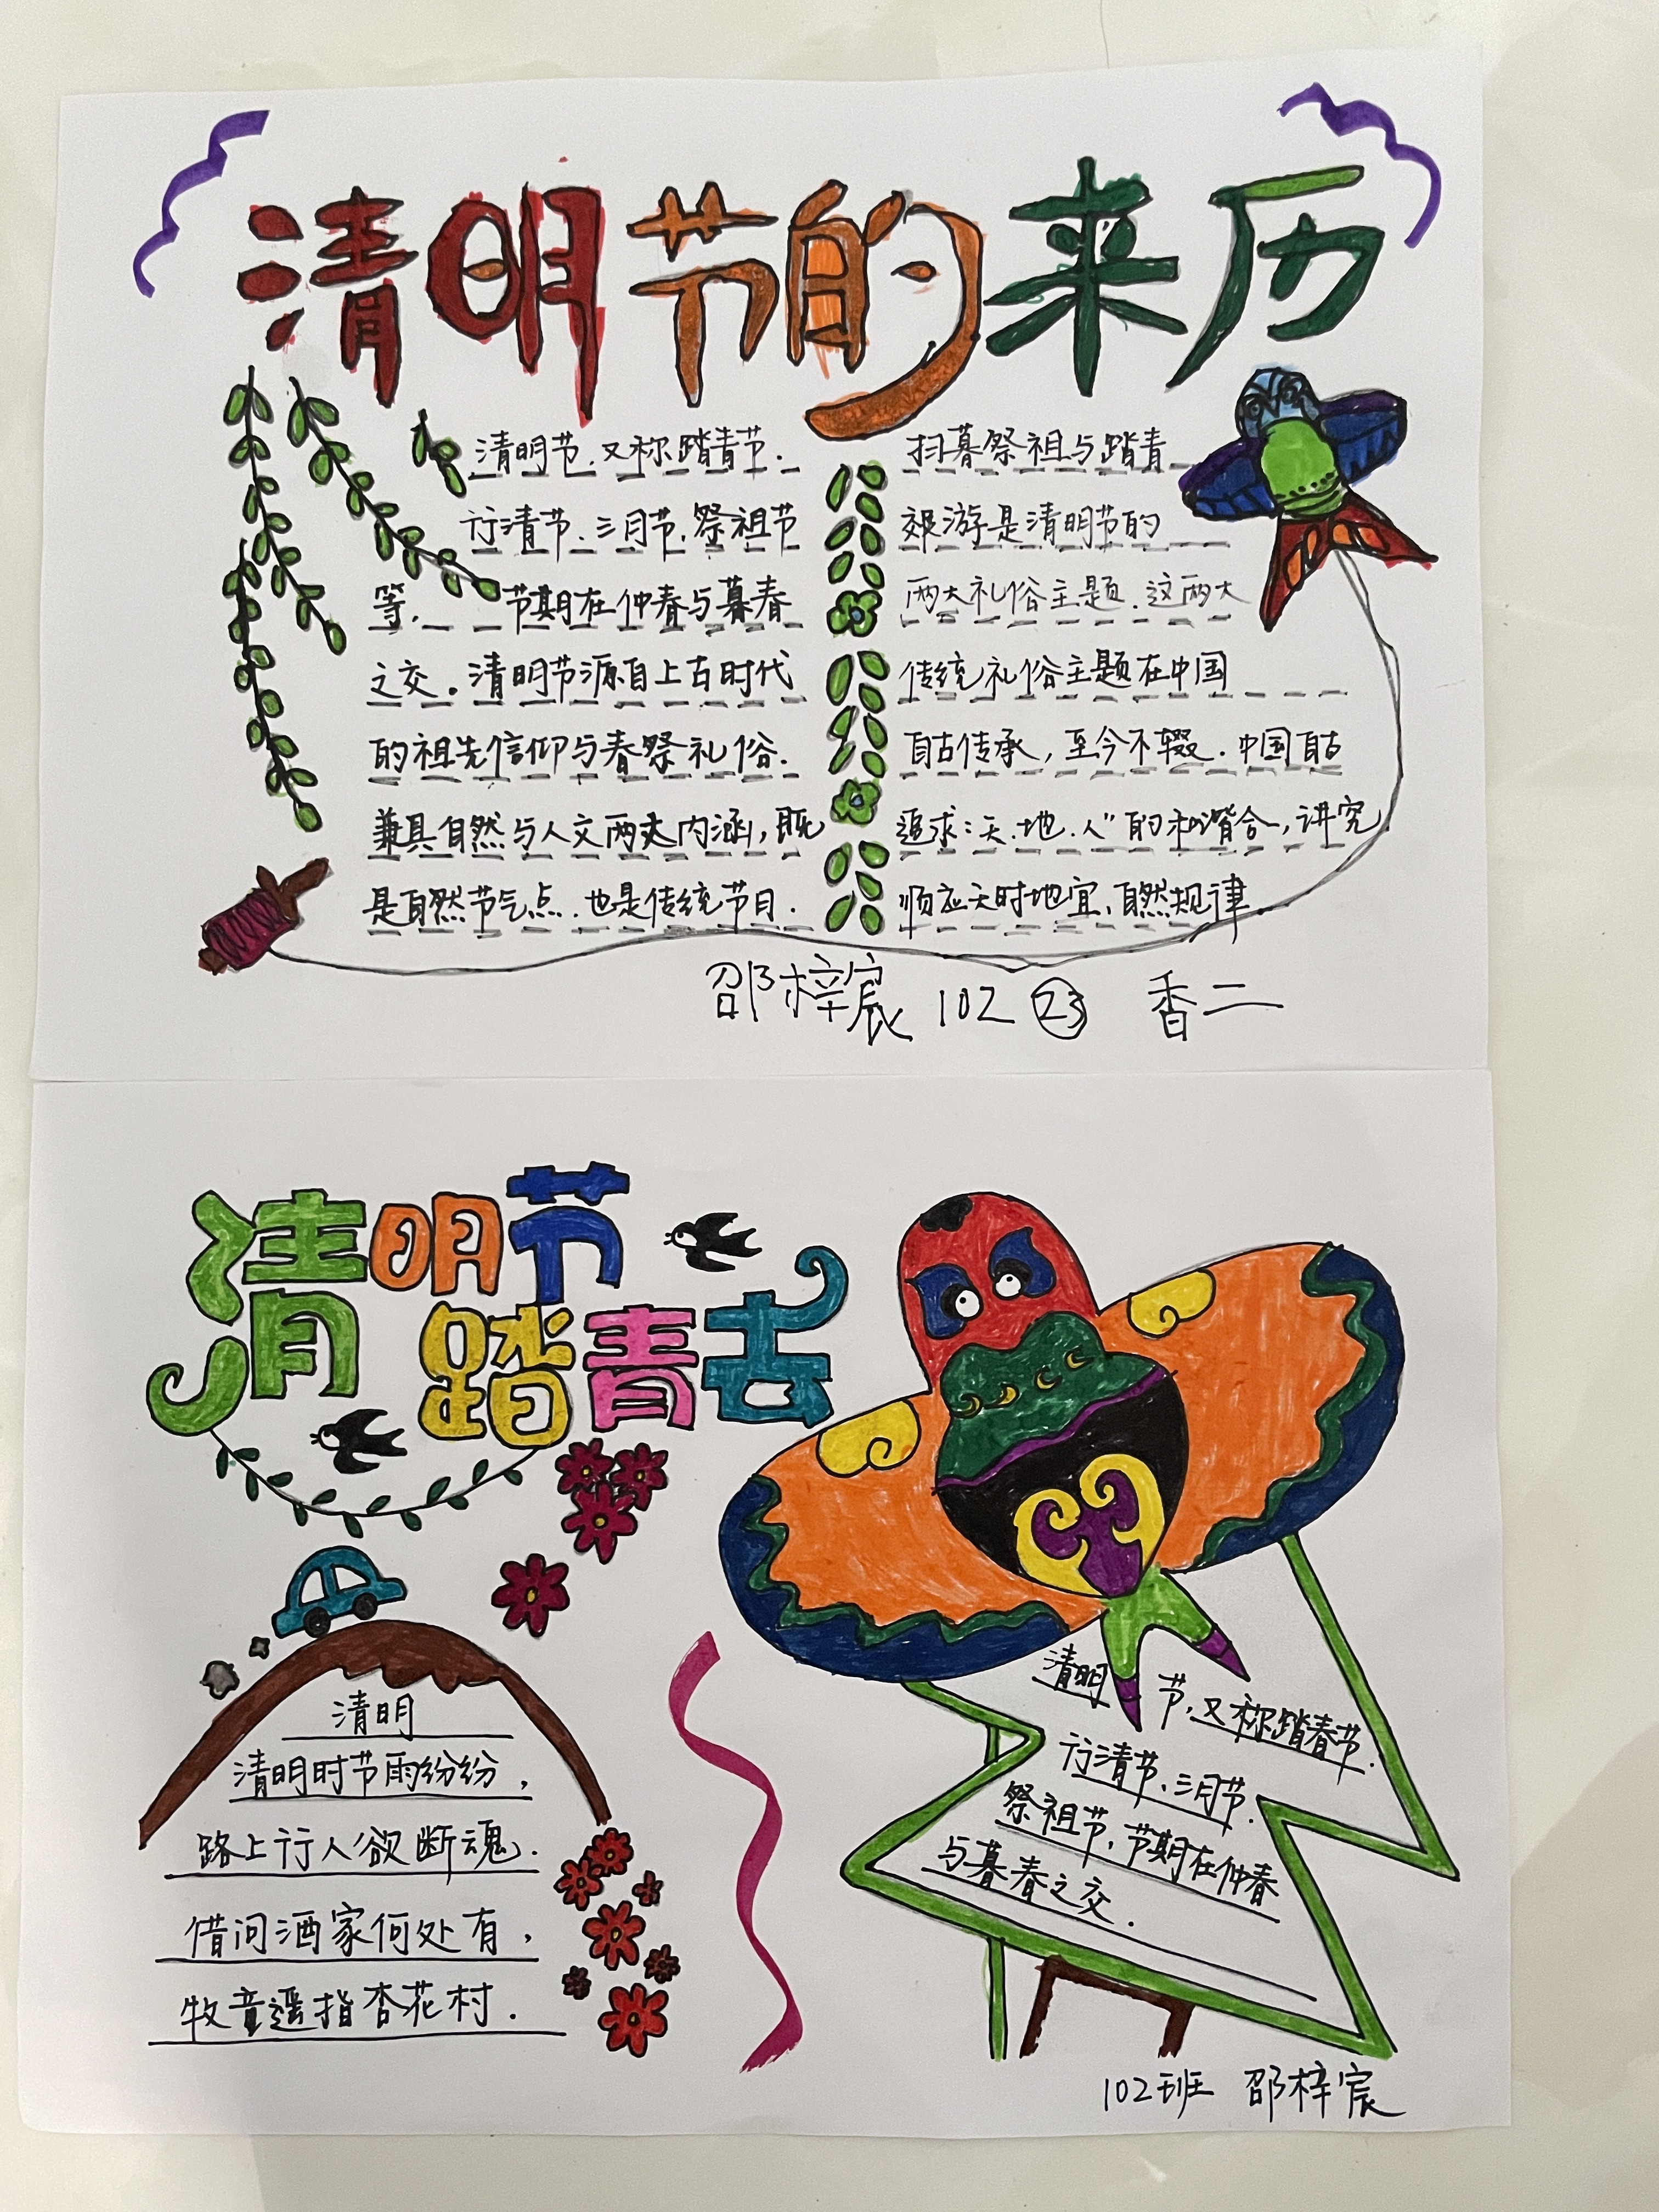 清明节的来历
清明节.又称踏青节.
行清节.三月节.祭祖节
等. 节期在仲春与暮春
之交。清明节源自上古时代
的祖先信仰与春祭礼俗.
兼具自然与人文两大内涵,既
是自然节气点.也是传统节日.
扫暮祭祖与踏青
郊游是清明节的
两大礼俗主题.这两大
传统礼俗主题在中国
自古传承,至今不辍.中国自古
追求:天.地.人"的和谐合一,讲究
顺应天时地宜、自然规律.
邵梓宸 102 23 香二
清明节
踏青去
清明
清明时节雨纷纷,
路上行人欲断魂.
借问酒家何处有,
牧童遥指杏花村.
清明节,又称踏春节.
行清节、三月节.
祭祖节,节期在仲春
与暮春之交.
102班 邵梓宸